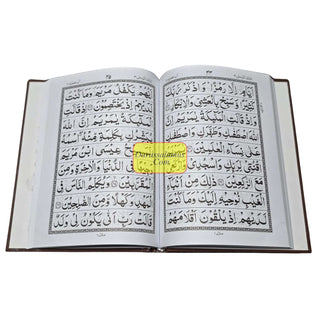 اَيَّامٍ اِلَّا رَمْزًا وَاذْكُرْ رَّبَّكَ
كَثِيْرًا وَّسَبِّحْ بِالْعَشِيِّ وَالْاِبْكَارِ
وَاِذْ قَالَتِ الْمَلٰٓئِكَةُ يٰمَرْيَمُ اِنَّ اللّٰهَ
اصْطَفٰىكِ وَطَهَّرَكِ وَاصْطَفٰىكِ
عَلٰى نِسَآءِ الْعٰلَمِيْنَ يٰمَرْيَمُ اقْنُتِيْ
لِرَبِّكِ وَاسْجُدِيْ وَارْكَعِيْ
مَعَ الرّٰكِعِيْنَ ذٰلِكَ مِنْ اَنْۢبَآءِ
الْغَيْبِ نُوْحِيْهِ اِلَيْكَ وَمَا كُنْتَ
لَدَيْهِمْ اِذْ يُلْقُوْنَ اَقْلَامَهُمْ
اَيُّهُمْ يَكْفُلُ مَرْيَمَ وَمَا كُنْتَ
لَدَيْهِمْ اِذْ يَخْتَصِمُوْنَ اِذْ قَالَتِ
الْمَلٰٓئِكَةُ يٰمَرْيَمُ اِنَّ اللّٰهَ
يُبَشِّرُكِ بِكَلِمَةٍ مِّنْهُ اسْمُهُ
الْمَسِيْحُ عِيْسَى ابْنُ مَرْيَمَ
وَجِيْهًا فِي الدُّنْيَا وَالْاٰخِرَةِ وَمِنَ
الْمُقَرَّبِيْنَ وَيُكَلِّمُ النَّاسَ فِي
الْمَهْدِ وَكَهْلًا وَّمِنَ الصّٰلِحِيْنَ
قَالَتْ رَبِّ اَنّٰى يَكُوْنُ لِيْ وَلَدٌ
Darussalamstore
.Com